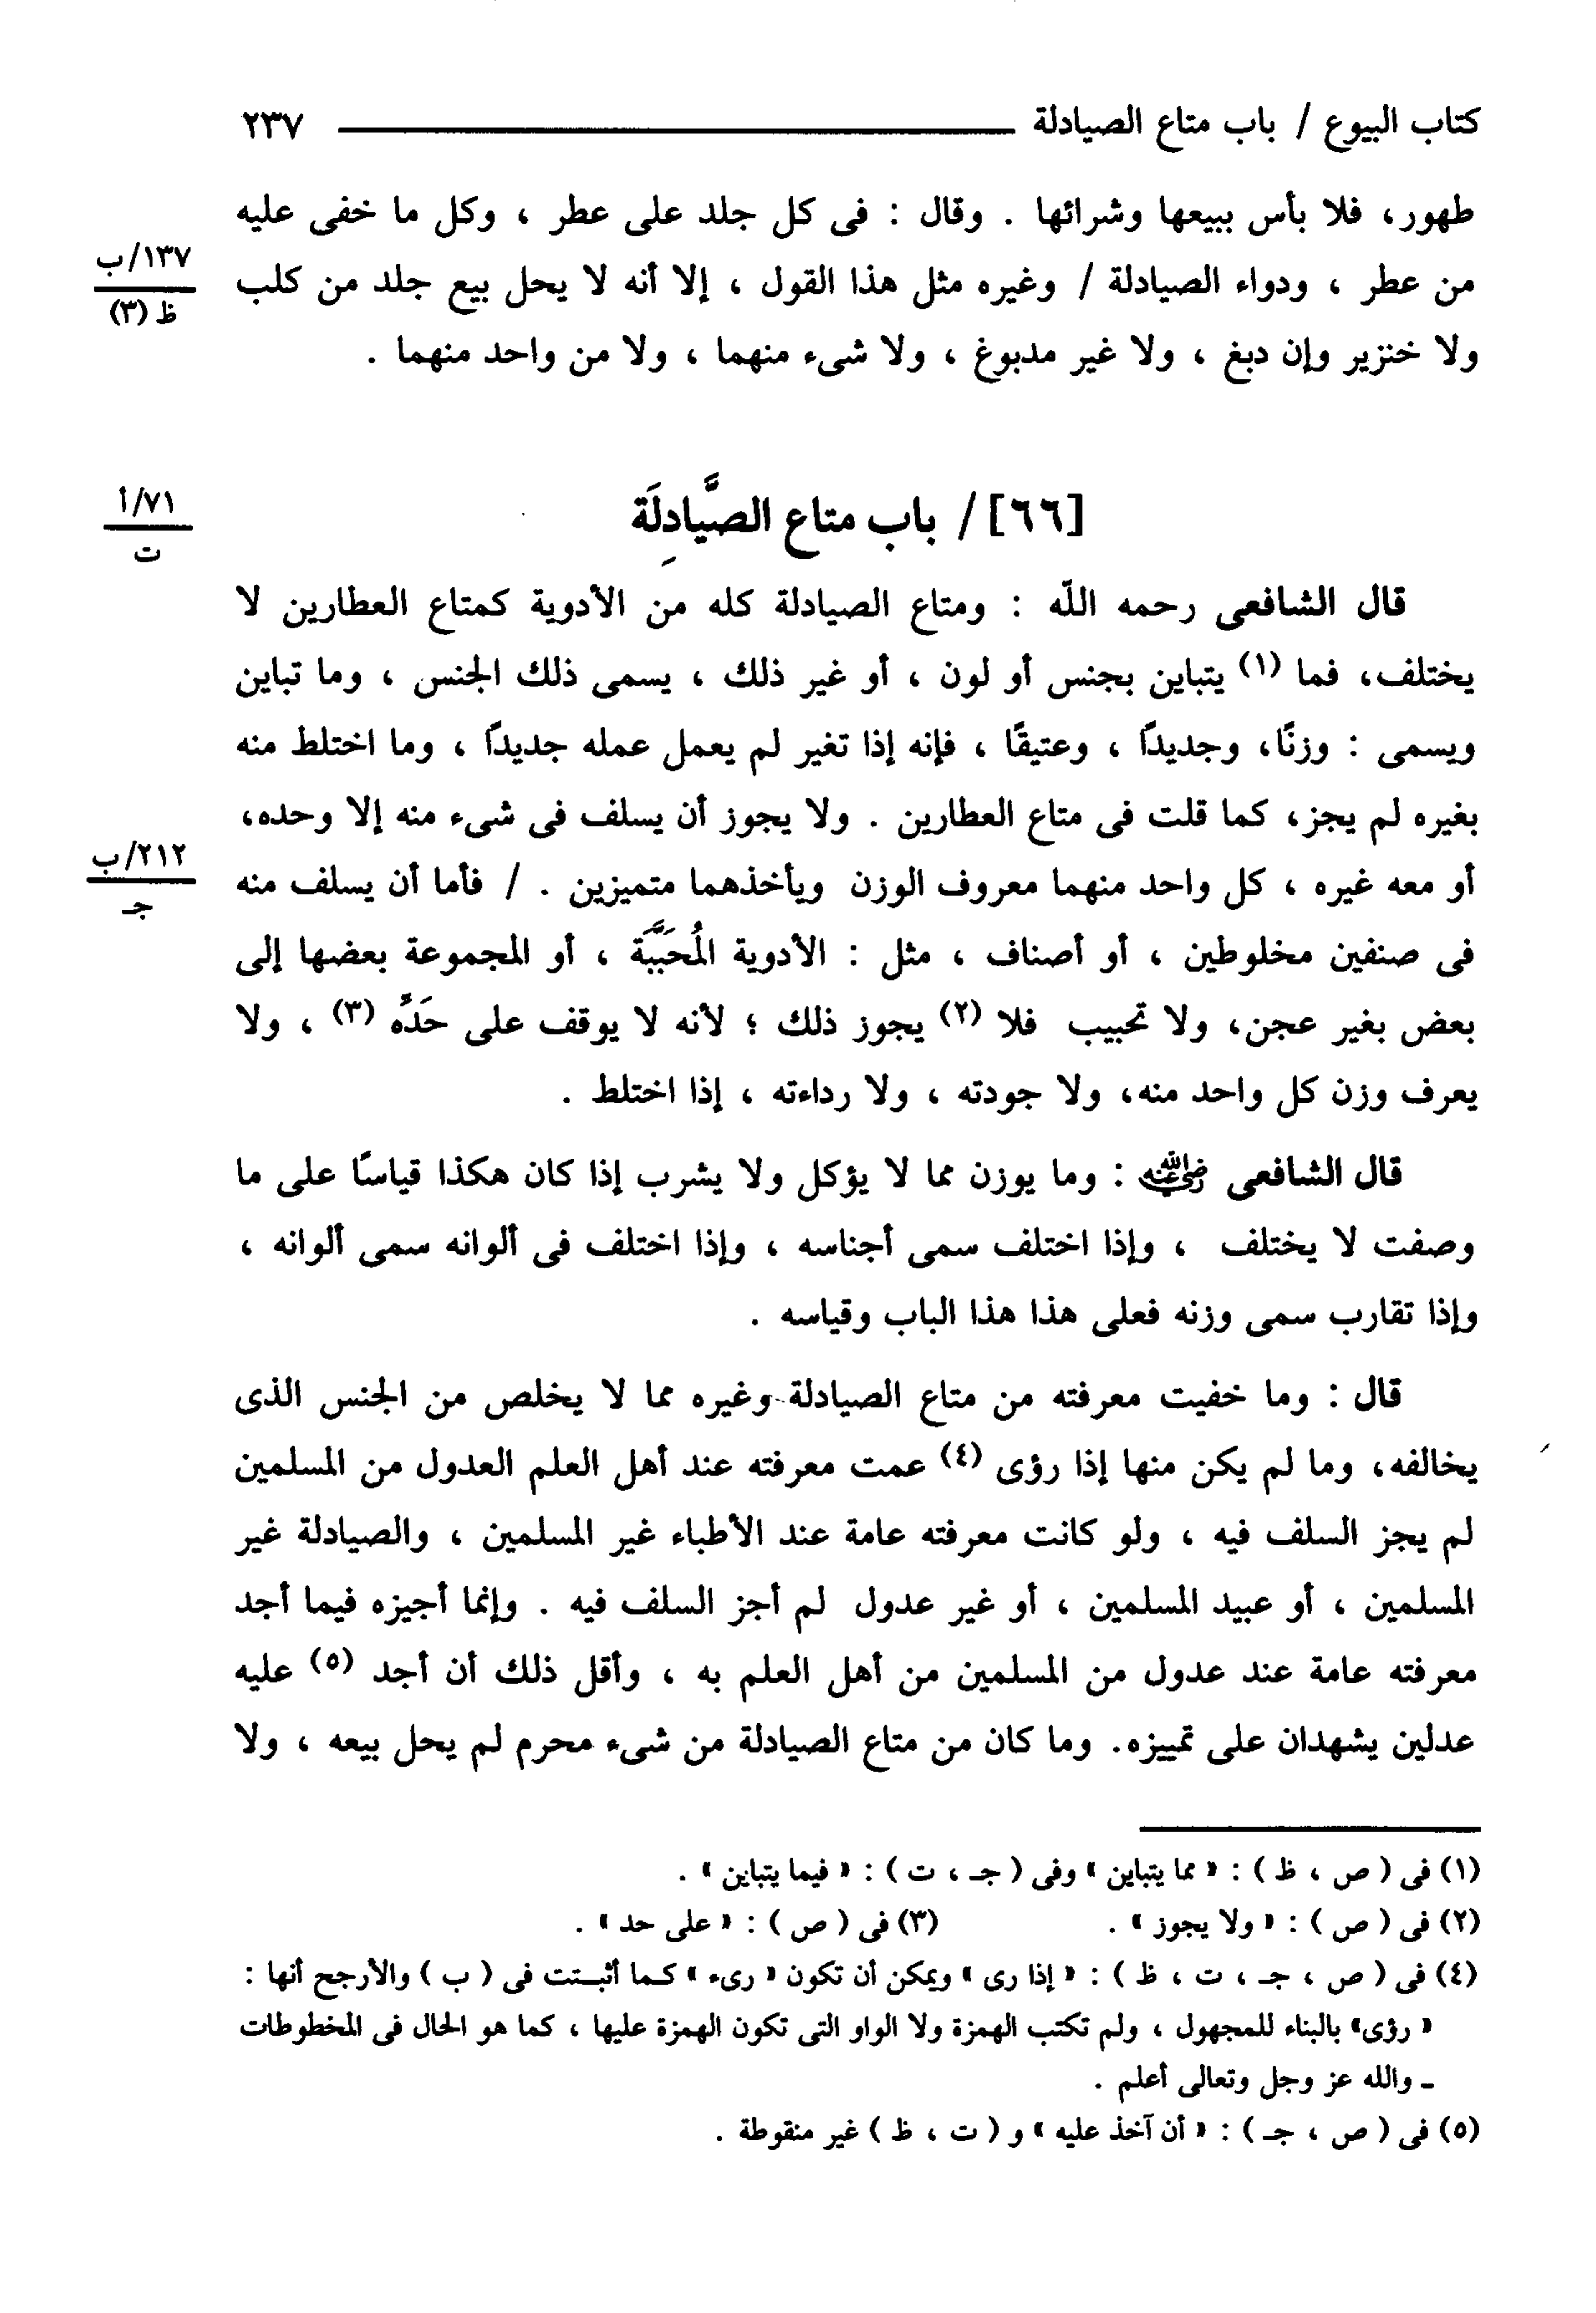 كتاب البيوع / باب متاع الصيادلة ٢٣٧
طهور، فلا بأس ببيعها وشرائها . وقال : فى كل جلد على عطر ، وكل ما خفى عليه
١٣٧/ب
من عطر ، ودواء الصيادلة / وغيره مثل هذا القول ، إلا أنه لا يحل بيع جلد من كلب
ظ (٣)
ولا خنزير وإن دبغ ، ولا غير مدبوغ ، ولا شىء منهما ، ولا من واحد منهما .
[٦٦] / باب متاع الصَّيَادِلَة
٧١/أ
ت
قال الشافعى رحمه اللّه : ومتاع الصيادلة كله من الأدوية كمتاع العطارين لا
يختلف، فما (١) يتباين بجنس أو لون ، أو غير ذلك ، يسمى ذلك الجنس ، وما تباين
ويسمى : وزنًا، وجديدًا ، وعتيقًا ، فإنه إذا تغير لم يعمل عمله جديدًا ، وما اختلط منه
بغيره لم يجز، كما قلت فى متاع العطارين . ولا يجوز أن يسلف فى شىء منه إلا وحده،
٢١٢/ب
أو معه غيره ، كل واحد منهما معروف الوزن ويأخذهما متميزين . / فأما أن يسلف منه
جـ
فى صنفين مخلوطين ، أو أصناف ، مثل : الأدوية المُحَبَّبَة ، أو المجموعة بعضها إلى
بعض بغير عجن، ولا تحبيب فلا (٢) يجوز ذلك ؛ لأنه لا يوقف على حَدِّه (٣) ، ولا
يعرف وزن كل واحد منه، ولا جودته ، ولا رداءته ، إذا اختلط .
قال الشافعى رضي الله عنه : وما يوزن مما لا يؤكل ولا يشرب إذا كان هكذا قياسًا على ما
وصفت لا يختلف ، وإذا اختلف سمى أجناسه ، وإذا اختلف فى ألوانه سمى ألوانه ،
وإذا تقارب سمى وزنه فعلى هذا هذا الباب وقياسه .
قال : وما خفيت معرفته من متاع الصيادلة وغيره مما لا يخلص من الجنس الذى
يخالفه، وما لم يكن منها إذا رؤى (٤) عمت معرفته عند أهل العلم العدول من المسلمين
لم يجز السلف فيه ، ولو كانت معرفته عامة عند الأطباء غير المسلمين ، والصيادلة غير
المسلمين ، أو عبيد المسلمين ، أو غير عدول لم أجز السلف فيه . وإنما أجيزه فيما أجد
معرفته عامة عند عدول من المسلمين من أهل العلم به ، وأقل ذلك أن أجد (٥) عليه
عدلين يشهدان على تمييزه. وما كان من متاع الصيادلة من شىء محرم لم يحل بيعه ، ولا
(١) فى ( ص ، ظ ) : « مما يتباين » وفى ( جـ ، ت ) : « فيما يتباين » .
(٢) فى ( ص ) : « ولا يجوز » . (٣) فى ( ص ) : « على حد » .
(٤) فى ( ص ، جـ ، ت ، ظ ) : « إذا رى » ويمكن أن تكون « رىء » كـما أثبـتت فى ( ب ) والأرجح أنها :
« رؤى» بالبناء للمجهول ، ولم تكتب الهمزة ولا الواو التى تكون الهمزة عليها ، كما هو الحال فى المخطوطات
ـ والله عز وجل وتعالى أعلم .
(٥) فى ( ص ، جـ ) : « أن آخذ عليه » و ( ت ، ظ ) غير منقوطة .